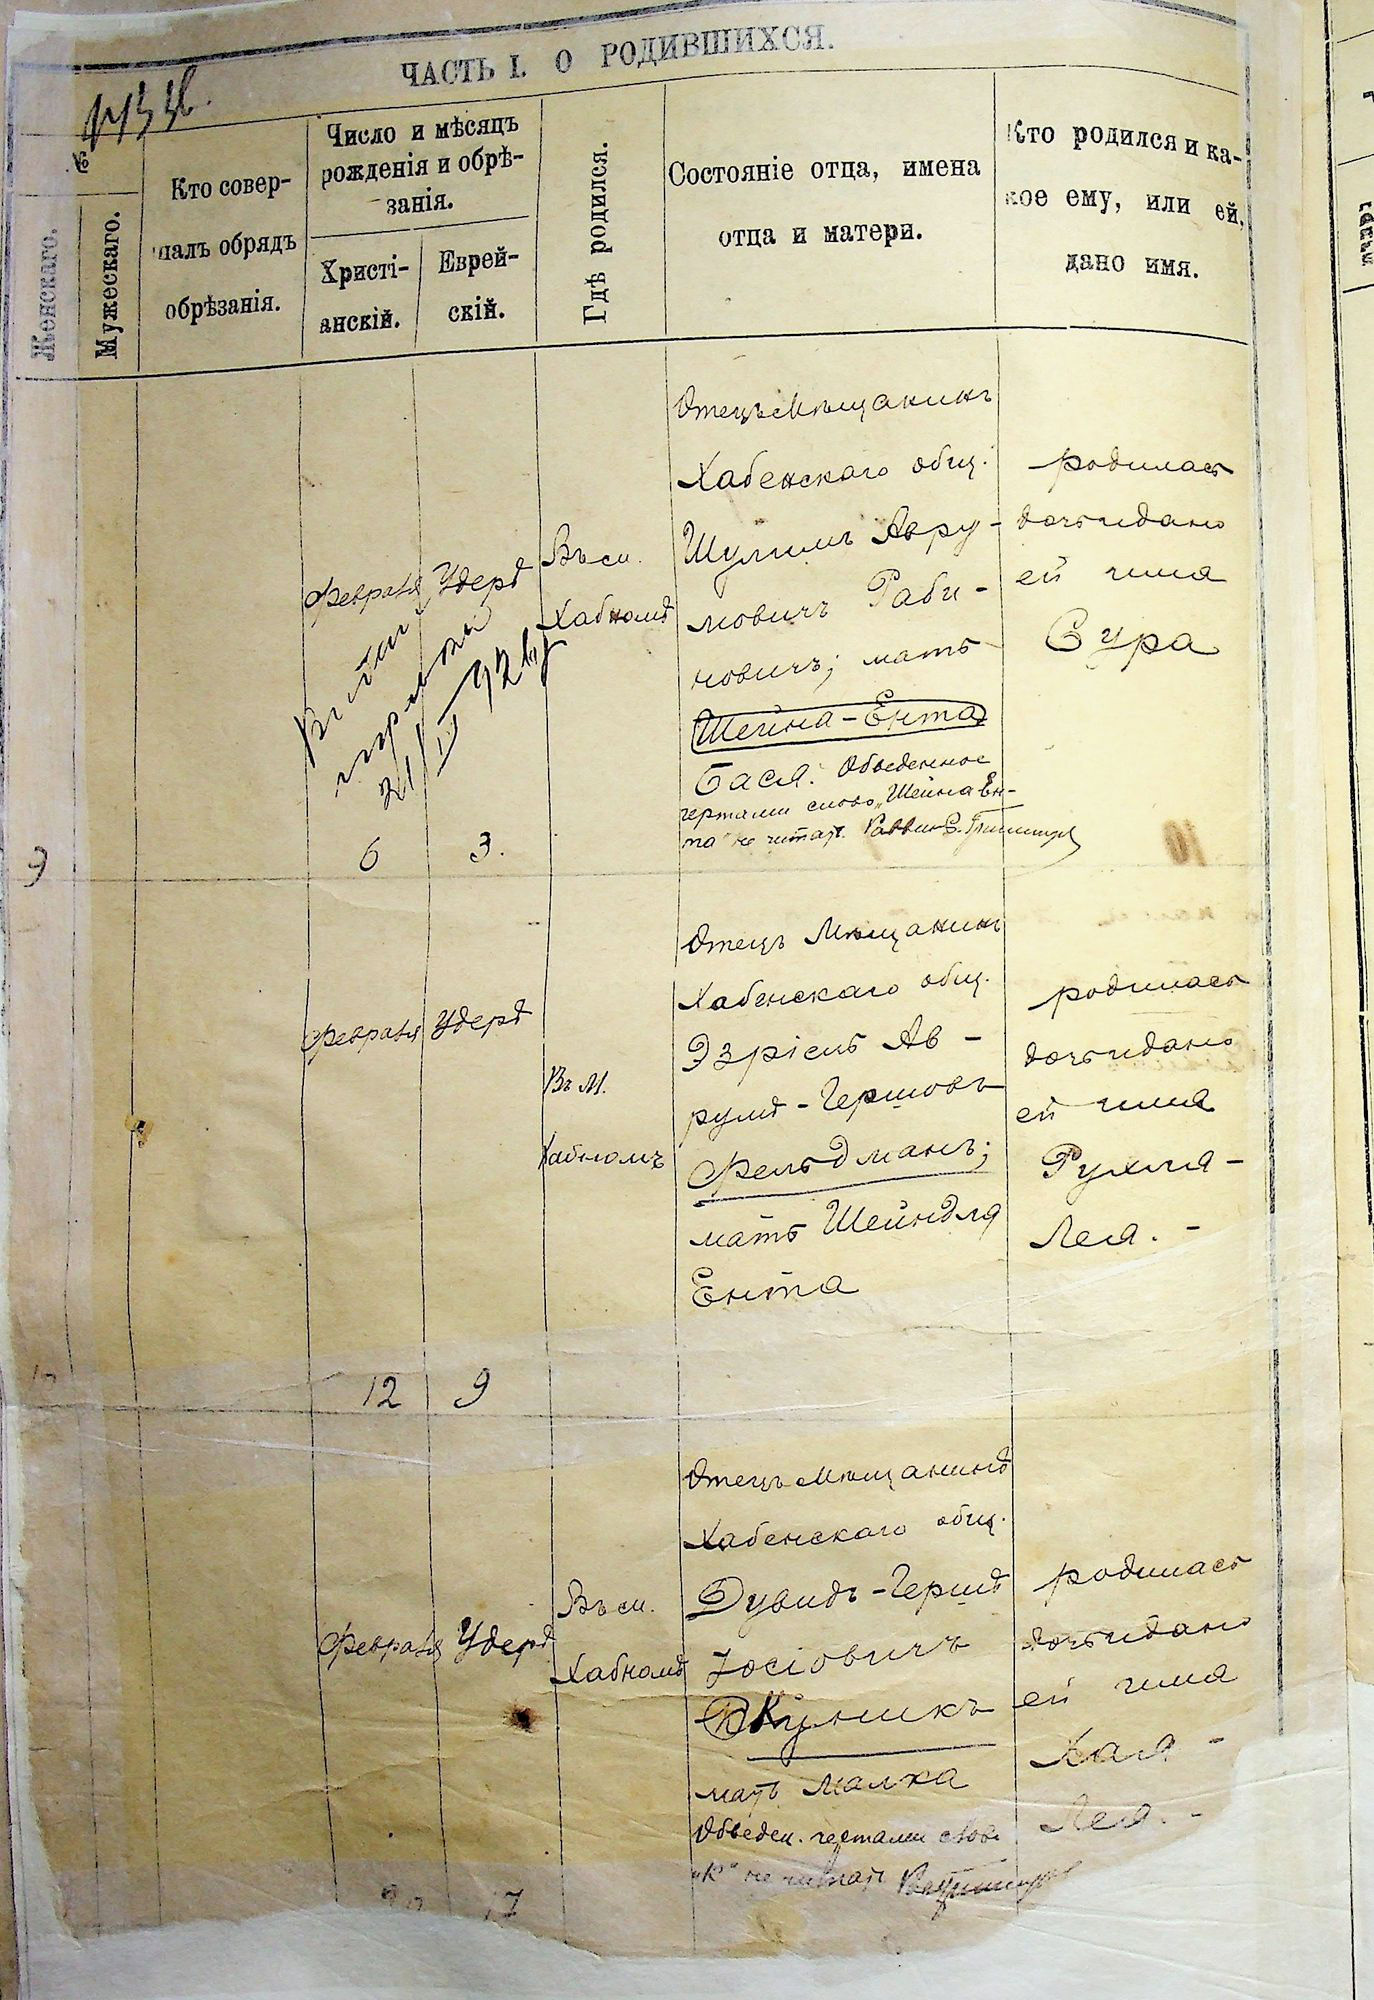 ЧАСТЬ I. О РОДИВШИХСЯ.
№
Женскаго.
Мужескаго.
Кто совер-
шалъ обрядъ
обрѣзанія.
Число и мѣсяцъ
рожденія и обрѣ-
занія.
Христі-
анскій.
Еврей-
скій.
Гдѣ родился.
Состояніе отца, имена
отца и матери.
Кто родился и ка-
кое ему, или ей,
дано имя.
9
Февраля
6
Удеръ
3.
Въ м.
Хабномъ
Отецъ Мѣщанинъ
Хабенскаго общ.
Шулимъ Авру-
мовичъ Раби-
новичъ; мать
Шейна-Ента
Бася. Обведенное
чертами слово „Шейна Ен-
та" не читать. Раввин
родилась
дочь и дано
ей имя
Сура
Февраля
12
Удеръ
9
Въ м.
Хабномъ
Отецъ Мѣщанинъ
Хабенскаго общ.
Эзріель Ав-
румъ-Гершовъ
Фельдманъ;
мать Шейндля
Ента
родилась
дочь и дано
ей имя
Рухля-
Лея. -
Февраля
Удеръ
17
Въ м.
Хабномъ
Отецъ Мѣщанинъ
Хабенскаго общ.
Дувидъ-Гершъ
Іосіовичъ
Куникъ
мать Малка
Обведен. чертами слово
„К" не читать
родилась
дочь и дано
ей имя
Хая-
Лея. -